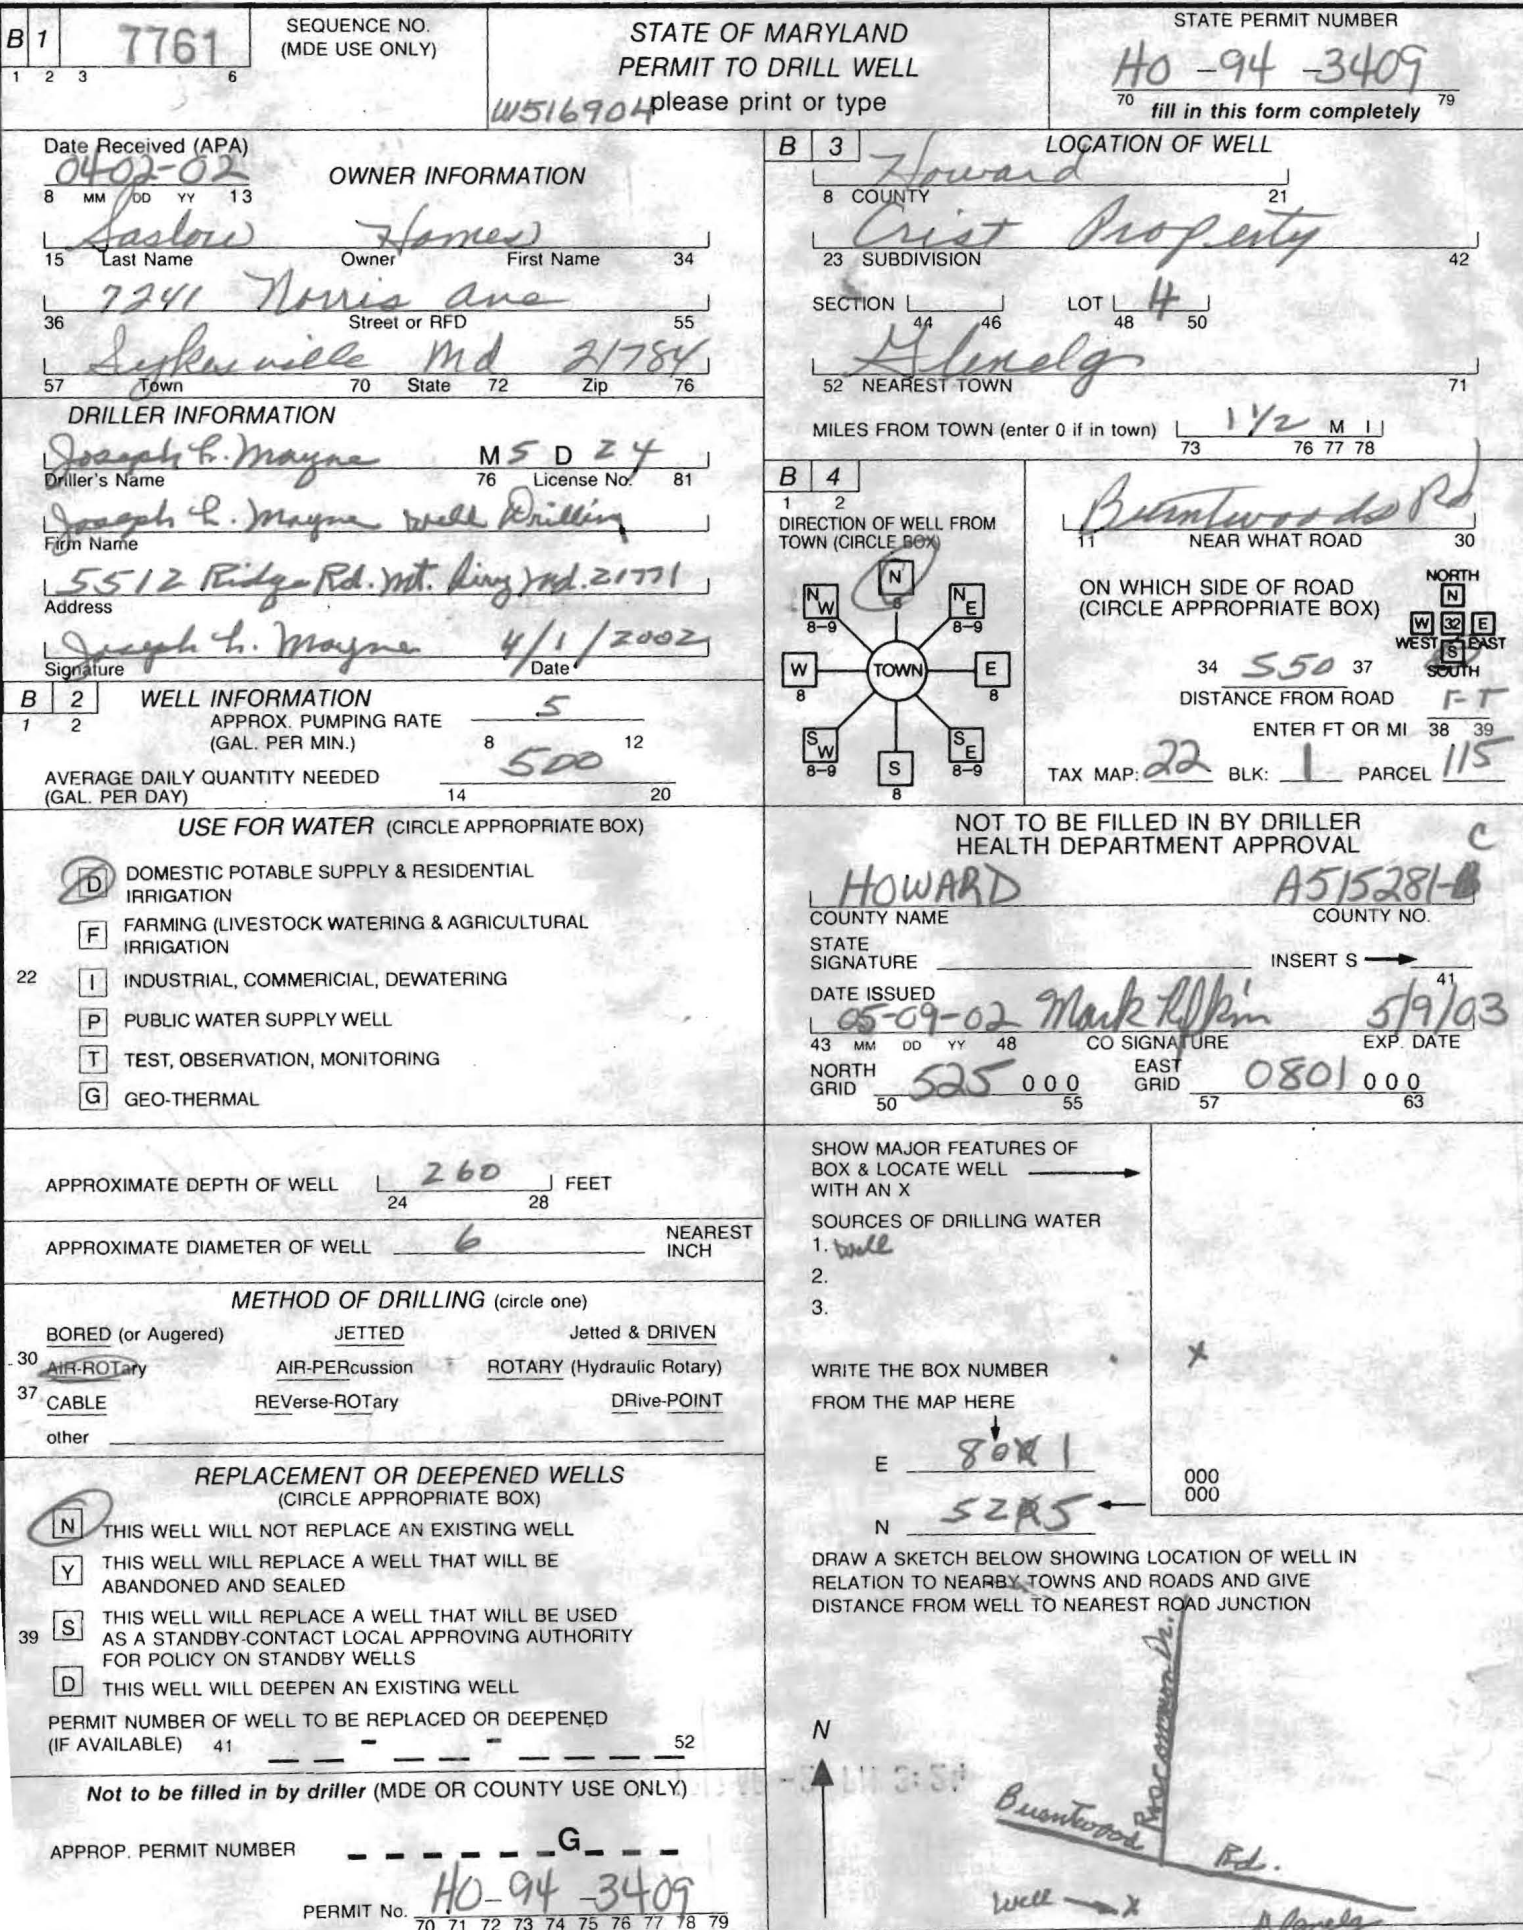 B 1
7761
1 2 3 6
SEQUENCE NO.
(MDE USE ONLY)
STATE OF MARYLAND
PERMIT TO DRILL WELL
W516904 please print or type
STATE PERMIT NUMBER
HO - 94 - 3409
70 79
fill in this form completely
Date Received (APA)
04-02-02
8 MM DD YY 13
OWNER INFORMATION
Saslow Homes
15 Last Name Owner First Name 34
7241 Norris ave
36 Street or RFD 55
Sykesville Md 21784
57 Town 70 State 72 Zip 76
DRILLER INFORMATION
Joseph L. Mayne M S D 24
Driller's Name 76 License No. 81
Joseph L. Mayne Well Drilling
Firm Name
5512 Ridge Rd. Mt. Airy Md. 21771
Address
Joseph L. Mayne 4/1/2002
Signature Date
B 2 WELL INFORMATION
1 2
APPROX. PUMPING RATE 5
(GAL. PER MIN.) 8 12
AVERAGE DAILY QUANTITY NEEDED 500
(GAL. PER DAY) 14 20
USE FOR WATER (CIRCLE APPROPRIATE BOX)
D DOMESTIC POTABLE SUPPLY & RESIDENTIAL
IRRIGATION
F FARMING (LIVESTOCK WATERING & AGRICULTURAL
IRRIGATION
22 I INDUSTRIAL, COMMERICIAL, DEWATERING
P PUBLIC WATER SUPPLY WELL
T TEST, OBSERVATION, MONITORING
G GEO-THERMAL
APPROXIMATE DEPTH OF WELL 260 FEET
24 28
APPROXIMATE DIAMETER OF WELL 6 NEAREST
INCH
METHOD OF DRILLING (circle one)
BORED (or Augered) JETTED Jetted & DRIVEN
30 AIR-ROTary AIR-PERcussion ROTARY (Hydraulic Rotary)
37 CABLE REVerse-ROTary DRive-POINT
other
REPLACEMENT OR DEEPENED WELLS
(CIRCLE APPROPRIATE BOX)
N THIS WELL WILL NOT REPLACE AN EXISTING WELL
Y THIS WELL WILL REPLACE A WELL THAT WILL BE
ABANDONED AND SEALED
S THIS WELL WILL REPLACE A WELL THAT WILL BE USED
39 AS A STANDBY-CONTACT LOCAL APPROVING AUTHORITY
FOR POLICY ON STANDBY WELLS
D THIS WELL WILL DEEPEN AN EXISTING WELL
PERMIT NUMBER OF WELL TO BE REPLACED OR DEEPENED
(IF AVAILABLE) 41 - - 52
Not to be filled in by driller (MDE OR COUNTY USE ONLY)
APPROP. PERMIT NUMBER G
PERMIT No. HO-94-3409
70 71 72 73 74 75 76 77 78 79
B 3 LOCATION OF WELL
Howard
8 COUNTY 21
Crist Property
23 SUBDIVISION 42
SECTION LOT 4
44 46 48 50
Glenelg
52 NEAREST TOWN 71
MILES FROM TOWN (enter 0 if in town) 1 1/2 M I
73 76 77 78
B 4
1 2
DIRECTION OF WELL FROM
TOWN (CIRCLE BOX)
N
8
NW NE
8-9 8-9
W TOWN E
8 8
SW SE
8-9 S 8-9
8
Burntwoods Rd
11 NEAR WHAT ROAD 30
ON WHICH SIDE OF ROAD
(CIRCLE APPROPRIATE BOX)
NORTH
N
W 32 E
WEST S EAST
SOUTH
34 550 37
DISTANCE FROM ROAD FT
ENTER FT OR MI 38 39
TAX MAP: 22 BLK: 1 PARCEL 115
NOT TO BE FILLED IN BY DRILLER
HEALTH DEPARTMENT APPROVAL C
HOWARD A515281-B
COUNTY NAME COUNTY NO.
STATE
SIGNATURE INSERT S
41
DATE ISSUED
05-09-02 Mark Rifkin 5/9/03
43 MM DD YY 48 CO SIGNATURE EXP. DATE
NORTH
GRID 525 000
50 55
EAST
GRID 0801 000
57 63
SHOW MAJOR FEATURES OF
BOX & LOCATE WELL
WITH AN X
SOURCES OF DRILLING WATER
1. well
2.
3.
X
WRITE THE BOX NUMBER
FROM THE MAP HERE
E 801
N 525
000
000
DRAW A SKETCH BELOW SHOWING LOCATION OF WELL IN
RELATION TO NEARBY TOWNS AND ROADS AND GIVE
DISTANCE FROM WELL TO NEAREST ROAD JUNCTION
N
Roscommon Dr.
Burntwood Rd.
Well X
Glenelg